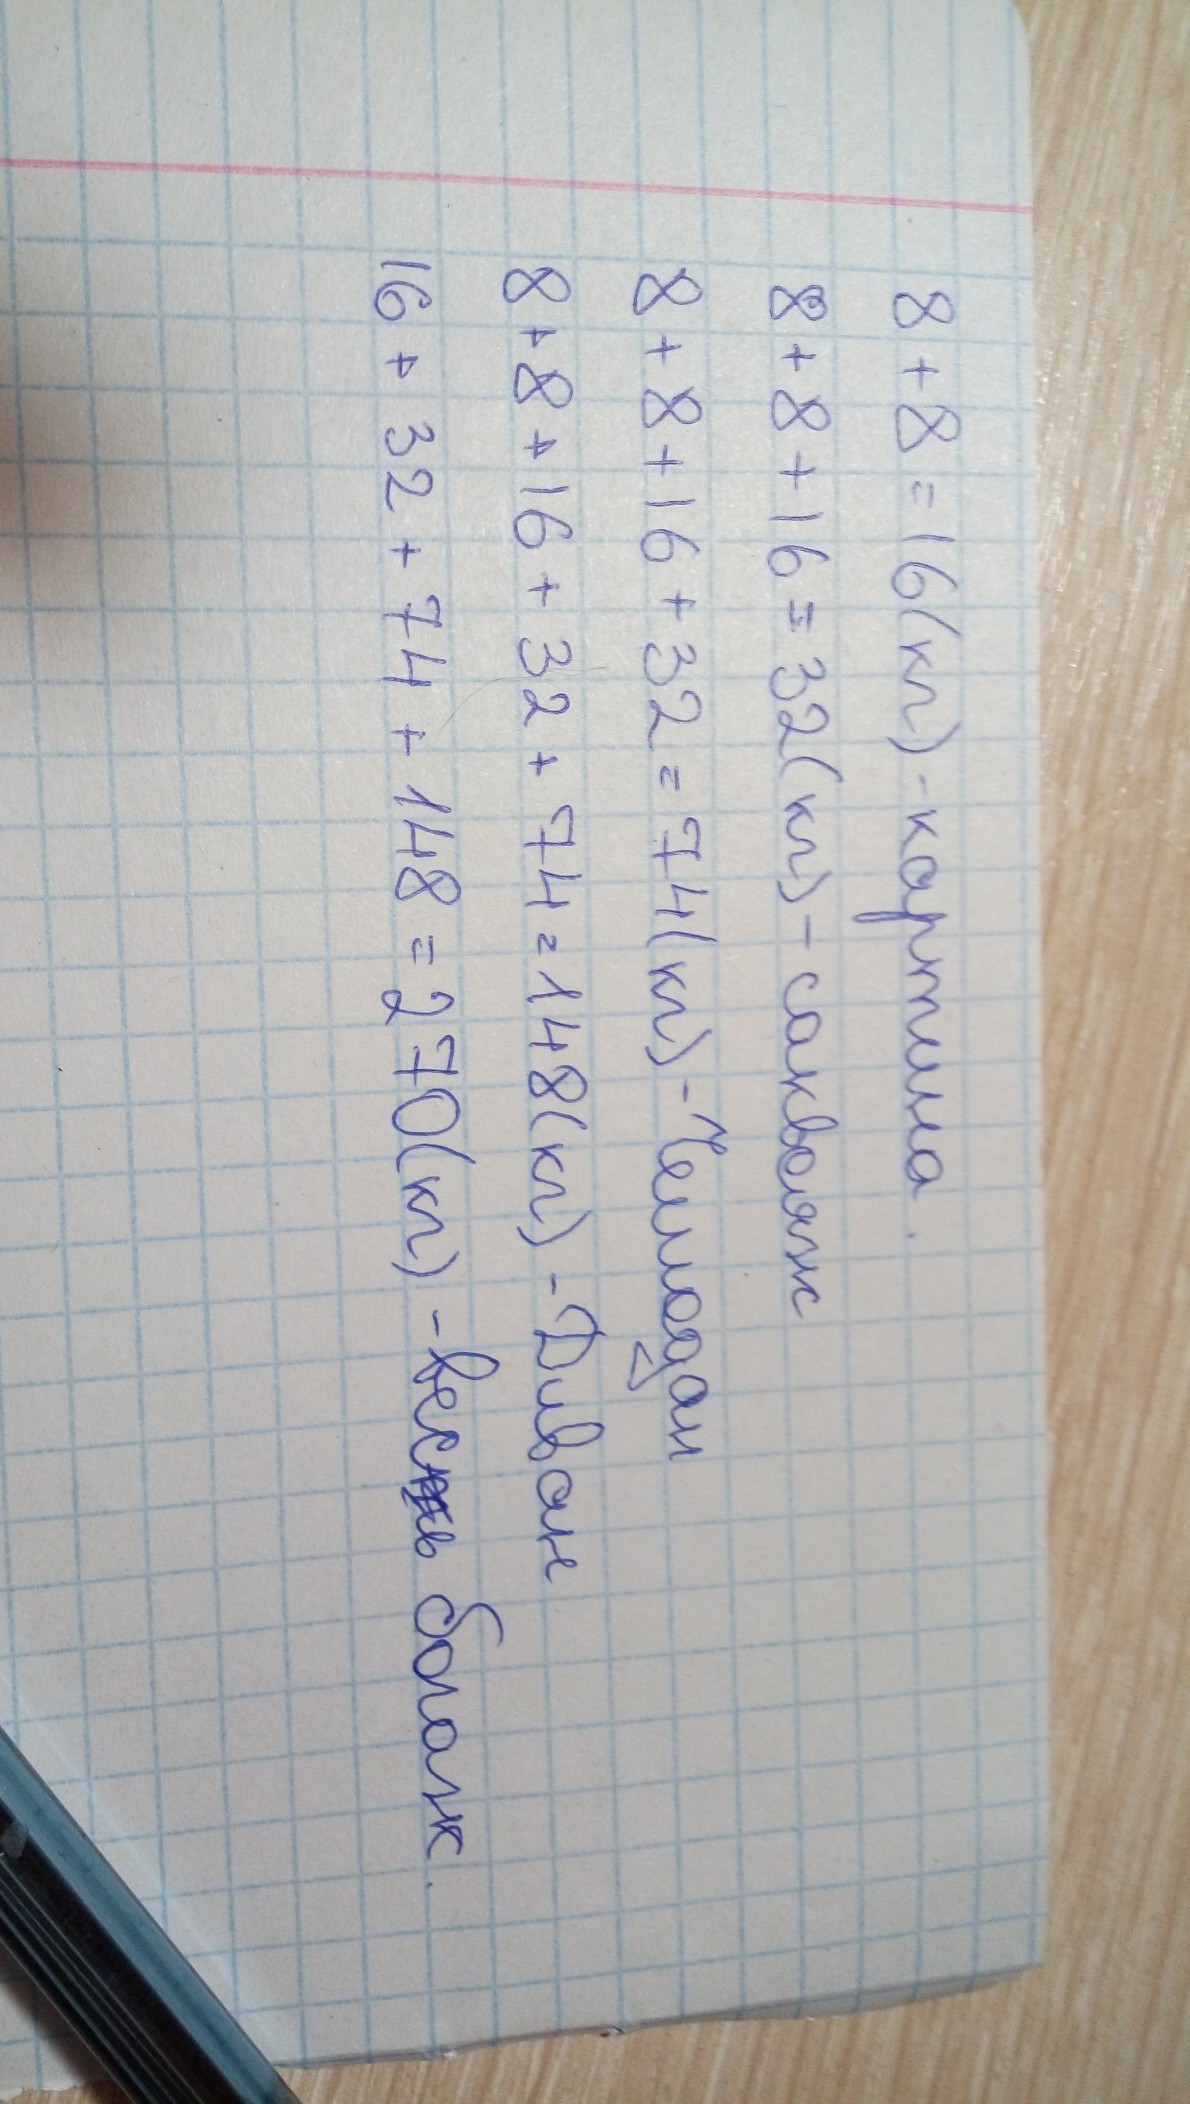 8 + 8 = 16(кг) - картина.
8 + 8 + 16 = 32(кг) - саквояж
8 + 8 + 16 + 32 = 74(кг) - Чемодан
8 + 8 + 16 + 32 + 74 = 148(кг) - Диван
16 + 32 + 74 + 148 = 270(кг) - весь богаж.